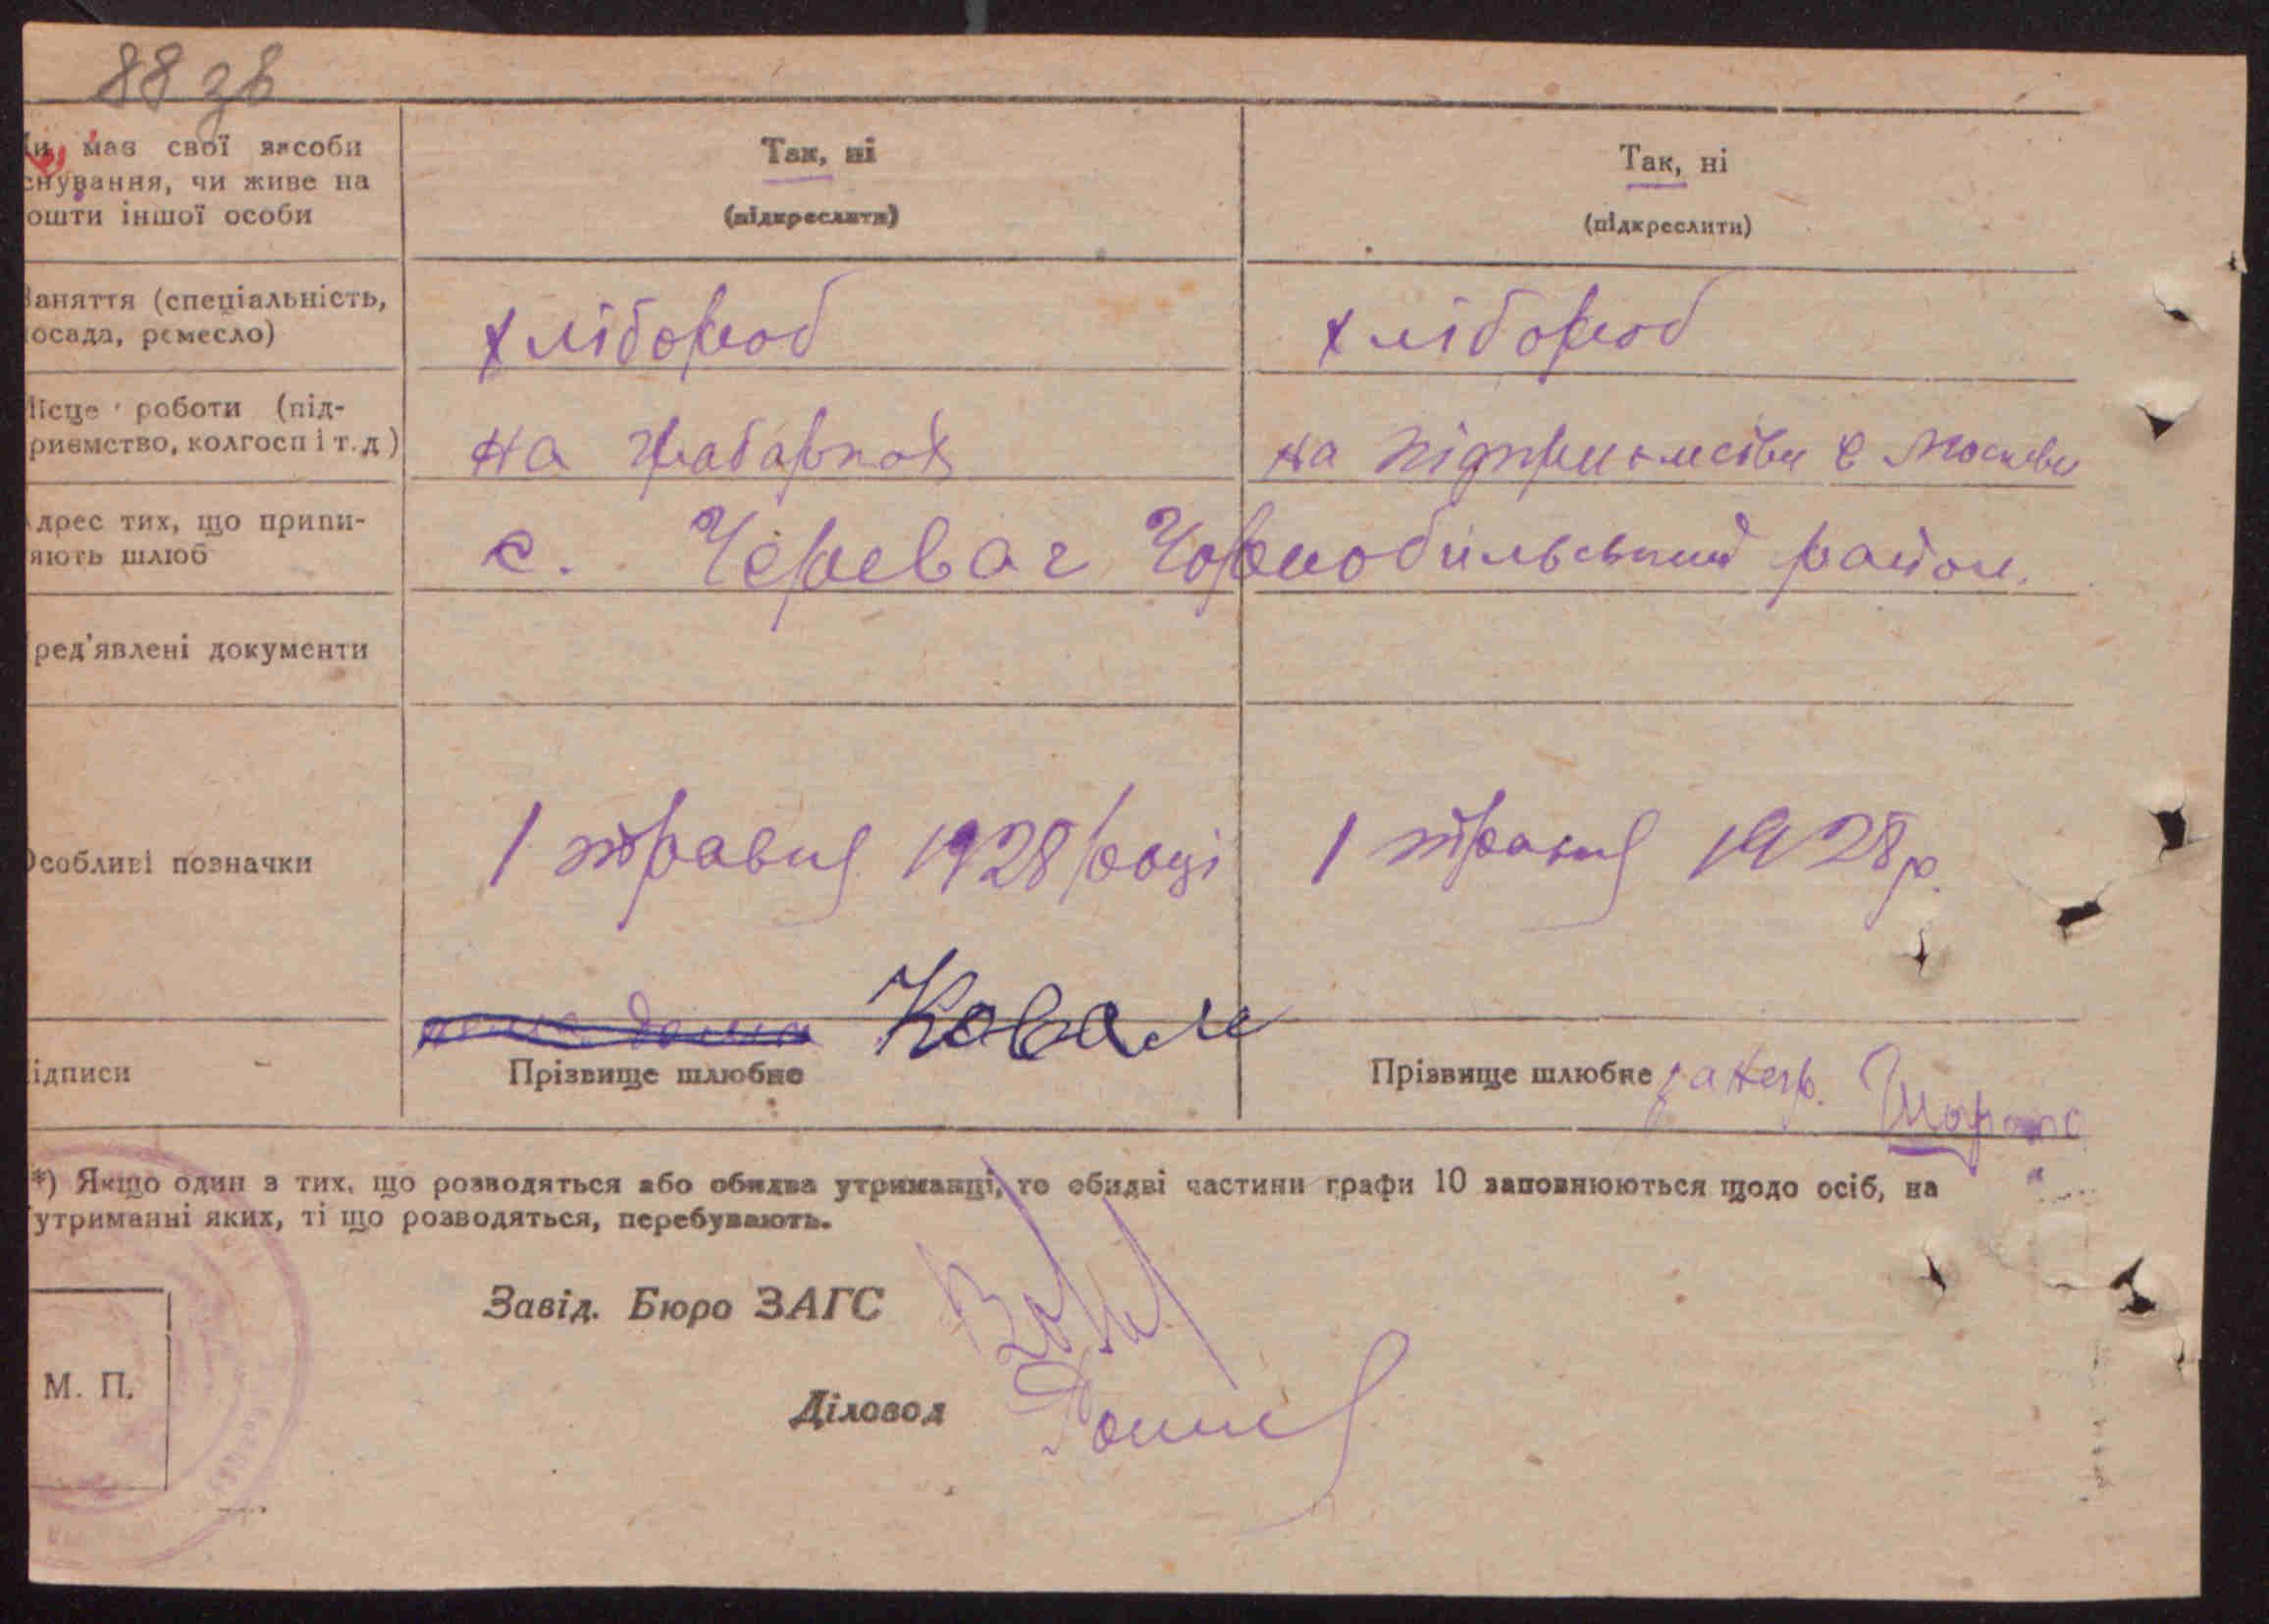 88 зв
и має свої засоби
снування, чи живе на
ошти іншої особи
Так, ні
(підкреслити)
Так, ні
(підкреслити)
Заняття (спеціальність,
посада, ремесло)
хлібороб
хлібороб
Місце роботи (під-
риємство, колгосп і т.д)
на грабарках
на підприємстви в Москви
Адрес тих, що припи-
яють шлюб
с. Черевач Чорнобильський район.
ред'явлені документи
Особливі позначки
1 травня 1928 році
1 травня 1928 р.
Коваль
ідписи
Прізвище шлюбне
Прізвище шлюбне
*) Якщо один з тих, що розводяться або обидва утриманці, то обидві частини графи 10 заповнюються щодо осіб, на
утриманні яких, ті що розводяться, перебувають.
Завід. Бюро ЗАГС
М. П.
Діловод